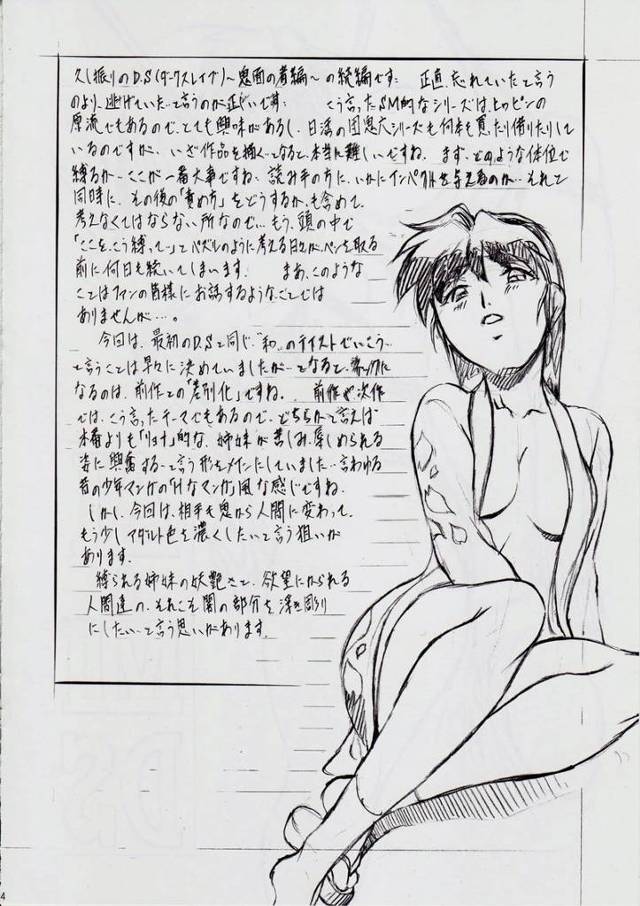 久し振りのD.S(ダークスレイブ)～鬼面の者編～の続編です。 正直、忘れていたと言う
のより、逃げていた…と言うのが正しいです。 こう言ったSM的なシリーズは、上のピンの
原流でもあるので、とても興味があるし、日活の団鬼六シリーズも何本も買ったり借りたりして
いるのですが、いざ作品を描く…となると、本当に難しいですね。まず、どのような体位で
縛るか…ここが一番大事ですね。読み手の方に、いかにインパクトを与えるのか…それと
同時に、その後の「責め方」をどうするか、も含めて
考えなくてはならない所なので…もう、頭の中で
「ここを、こう縛って…」とパズルのように考える日々が、ペンを取る
前に何日も続いてしまいます。 まあ、このような
ことはファンの皆様にお話するような、ことでは
ありませんが…。
今回は、最初のD.Sと同じ、“和”のテイストでいこう…
と言うことは早々に決めていましたが…となると、ネックに
なるのは、前作との「差別化」ですね。 前作や次作
では、こう言ったテーマでもあるので、どちらかと言えば
本番よりも「リョナ」的な、姉妹が苦しみ、辱しめられる
姿に興奮する…と言う形をメインにしていました…言わゆる
昔の少年マンガの「Hなマンガ」風な感じですね。
しかし、今回は、相手も鬼から人間に変わって、
もう少しアダルト色を濃くしたいと言う狙いが
あります。
縛られる姉妹の妖艶さと、欲望にかられる
人間達の、それこそ闇の部分を浮き彫り
にしたい…と言う思いがあります。
4